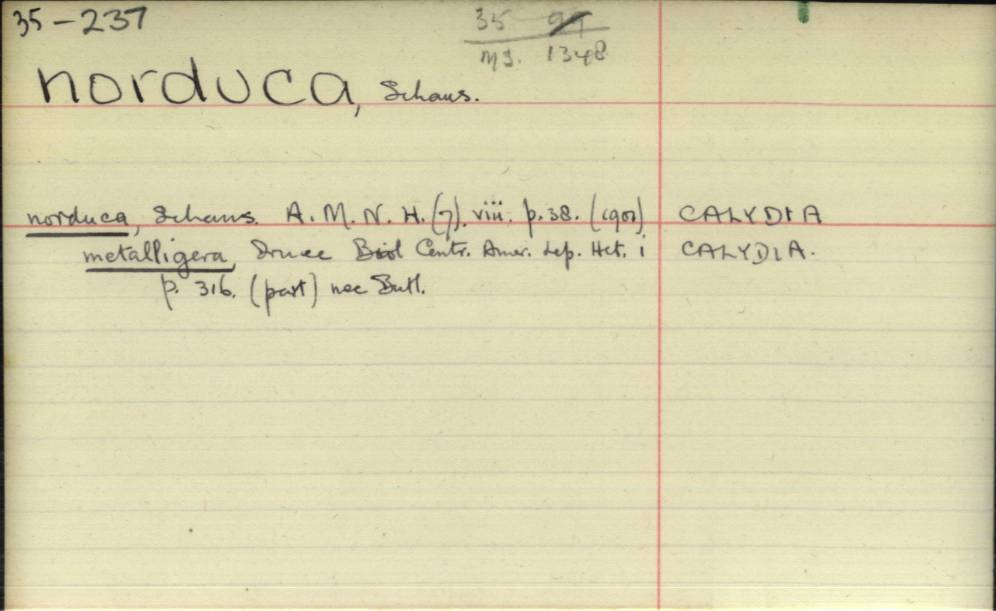 35-237
35
MS. 1348
norduca, Schaus.
norduca, Schaus. A. M. N. H. (7). viii. p. 38. (1901) CALYDIA
metalligera, Druce Biol Centr. Amer. Lep. Het. i CALYDIA.
p. 316. (part) nec Butl.